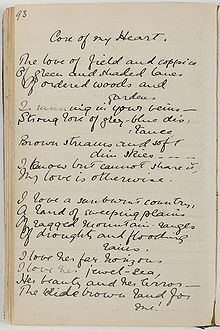 93
Core of my Heart.
The love of field and coppice
Of green and shaded lanes
Of ordered woods and
gardens
Is running in your veins—
Strong love of grey-blue dis-
tance
Brown streams and soft
dim skies
I know but cannot share it,
My love is otherwise.
I love a sunburnt country,
A land of sweeping plains
Of ragged mountain ranges
Of droughts and flooding
rains.
I love her far horizons
I love her jewel-sea,
Her beauty and her terror—
The wide brown land for
me!